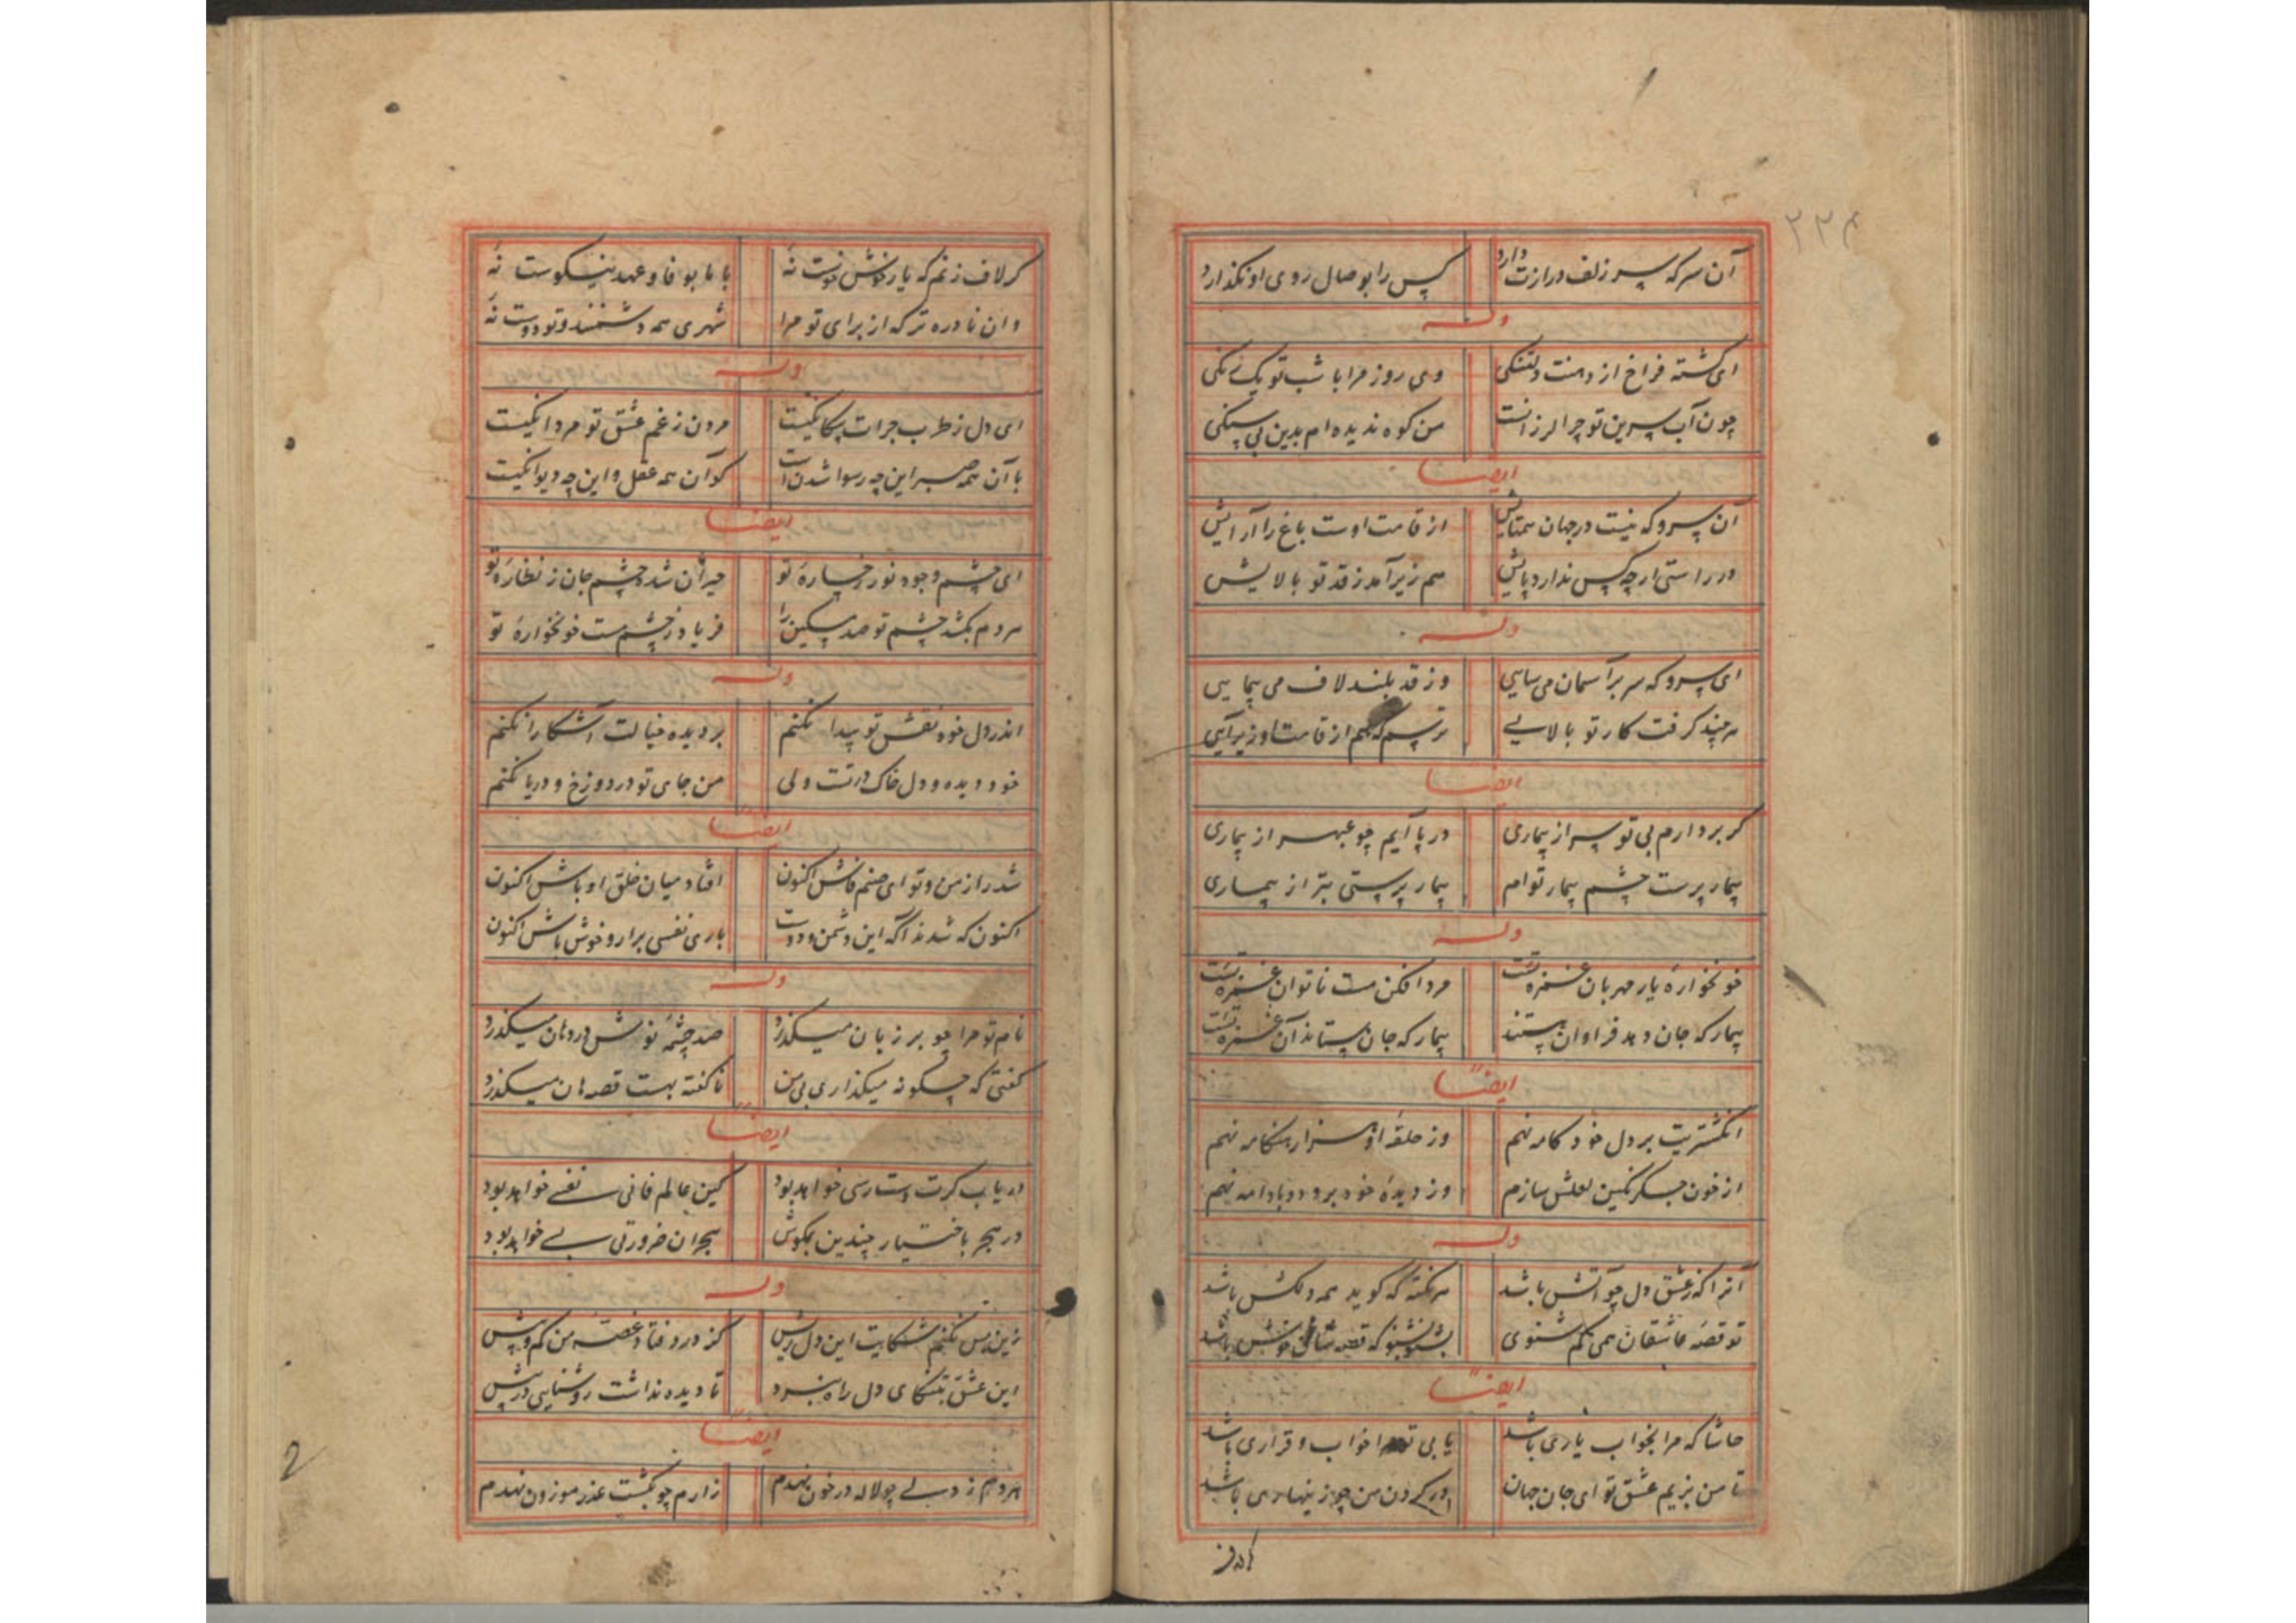 ۲۲۴
آن سر که سر زلف درازت دارد کس را بوصال روی او نگذارد
وله
ای گشته فراخ از دهنت دلتنگی وی روز مرا با شب تو یک رنگی
چون آب سرین تو چرا لرزانست من کوه ندیده ام بدین بی سنگی
ایضاً
آن سرو که نیست در جهان همتایش از قامت اوست باغ را آرایش
در راستی ار چه کس ندارد پایش هم زیر آمد ز قد تو بالایش
وله
ای سرو که سر بر آسمان می سایی وز قد بلند لاف می پیمایی
هر چند گرفت کار تو بالایی ترسم که هم از قامت او زیر آیی
ایضاً
گر بر دارم بی تو سر از بیماری در پا آیم چو عبهر از بیماری
بیمار پرست چشم بیمار توام بیمار پرستی بتر از بیماری
وله
خونخواره یار مهربان غمزه تست مرد افکن مست ناتوان غمزه تست
بیمار که جان دهد فراوان هستند بیمار که جان ستاند آن غمزه تست
ایضاً
انگشتریت بر دل خودکامه نهم وز حلقه او هزار هنگامه نهم
از خون جگر نگین لعلش سازم وز دیده خود برو دو بادامه نهم
وله
آنرا که ز عشق دل چو آتش باشد هر نکته که گوید همه دلکش باشد
تو قصه عاشقان همی کم شنوی بشنو بشنو که قصه شان خوش باشد
ایضاً
حاشا که مرا بخواب یاری باشد یا بی تو مرا خواب و قراری باشد
تا من بزیم عشق تو ای جان جهان در گردن من چو زینهاری باشد
گر لاف زنم که یار خوش خوست نه با ما بوفا و عهد نیکوست نه
وان نادره تر که از برای تو مرا شهری همه دشمنند و تو دوست نه
وله
ای دل ز طرب جرات بیگانگیست مردن ز غم عشق تو مردانگیست
با آن همه صبر این چه رسوا شدن است کو آن همه عقل و این چه دیوانگیست
ایضاً
ای چشم وجود نور رخساره تو حیران شده چشم جان ز نظاره تو
هر دم بکشد چشم تو صد مسکین را فریاد ز چشم مست خونخواره تو
وله
اندر دل خود نقش تو پیدا نکنم بر دیده خیالت آشکارا نکنم
خود دیده و دل خاک درتست ولی من جای تو در دوزخ و دریا نکنم
ایضاً
شد راز من و تو ای صنم فاش اکنون افتاد میان خلق اوباش اکنون
اکنون که شدند آگه این دشمن و دوست باری نفسی برار و خوش باش اکنون
وله
نام تو مرا چو بر زبان میگذرد صد چشمه نوش در دهان میگذرد
گفتی که چگونه میگذاری بی من ناگفته بهست قصه هان میگذرد
ایضاً
دریاب گرت دسترسی خواهد بود کین عالم فانی نفسی خواهد بود
در هجر باختیار چندین بمکوش هجران ضرورتی بسی خواهد بود
وله
زین پس نکنم شکایت این دل ریش کز درد فتاد غصه من کم و بیش
این عشق بتنگنای دل راه نبرد تا دیده نداشت روشنایی در پیش
ایضاً
هر دم ز دلی چو لاله در خون نهدم زارم چو بکشت عذر موزون نهدم